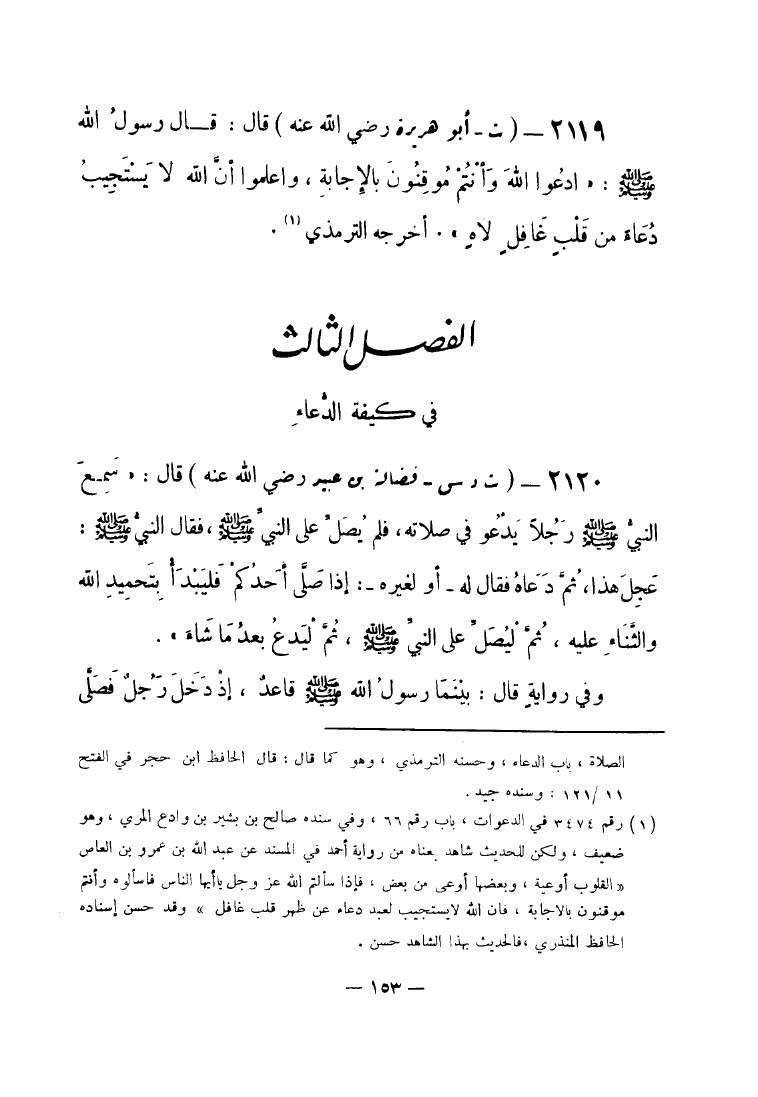 ٢١١٩ — ( ت - أبو هريرة رضي الله عنه ) قال : قـــال رسولُ الله
ﷺ : « ادعُوا اللهَ وَأَنْتُمْ مُوقِنُونَ بالإِجابةِ ، واعلموا أنَّ الله لا يَسْتَجِيبُ
دُعَاءَ من قَلْبٍ غَافِلٍ لاهٍ » . أخرجه الترمذي (١) .
الفصل الثالث
في كيفة الدُّعاءِ
٢١٢٠ — ( ت د س - فضالة بن عبيد رضي الله عنه ) قال : « سَمِـعَ
النبيُّ ﷺ رَجُلاً يَدْعُو في صلاته ، فلم يُصَلِّ على النبيِّ ﷺ ، فقال النبيُّ ﷺ :
عَجِلَ هذا ، ثُمَّ دَعَاهُ فقال له - أو لغيره - : إذا صَلَّى أَحَدُكُمْ فَليَبْدَأْ بِتَحمِيدِ الله
والثَّنَاءِ عليه ، ثُمَّ لْيُصَلِّ على النبيِّ ﷺ ، ثُمَّ لْيَدعُ بعدُ مَا شَاءَ » .
وفي روايةٍ قال : بيْنَمَا رسولُ الله ﷺ قاعدٌ ، إذْ دَخَلَ رَجُلٌ فَصَلَّى
الصلاة ، باب الدعاء ، وحسنه الترمذي ، وهو كما قال : قال الحافظ ابن حجر في الفتح
١١ /١٢١ : وسنده جيد .
(١) رقم ٣٤٧٤ في الدعوات ، باب رقم ٦٦ ، وفي سنده صالح بن بشير بن وادع المري ، وهو
ضعيف ، ولكن للحديث شاهد بمعناه من رواية أحمد في المسند عن عبد الله بن عمرو بن العاص
« القلوب أوعية ، وبعضها أوعى من بعض ، فإذا سألتم الله عز وجل ياأيها الناس فاسألوه وأنتم
موقنون بالاجابة ، فان الله لايستجيب لعبد دعاء عن ظهر قلب غافل » وقد حسن إسناده
الحافظ المنذري ، فالحديث بهذا الشاهد حسن .
— ١٥٣ —